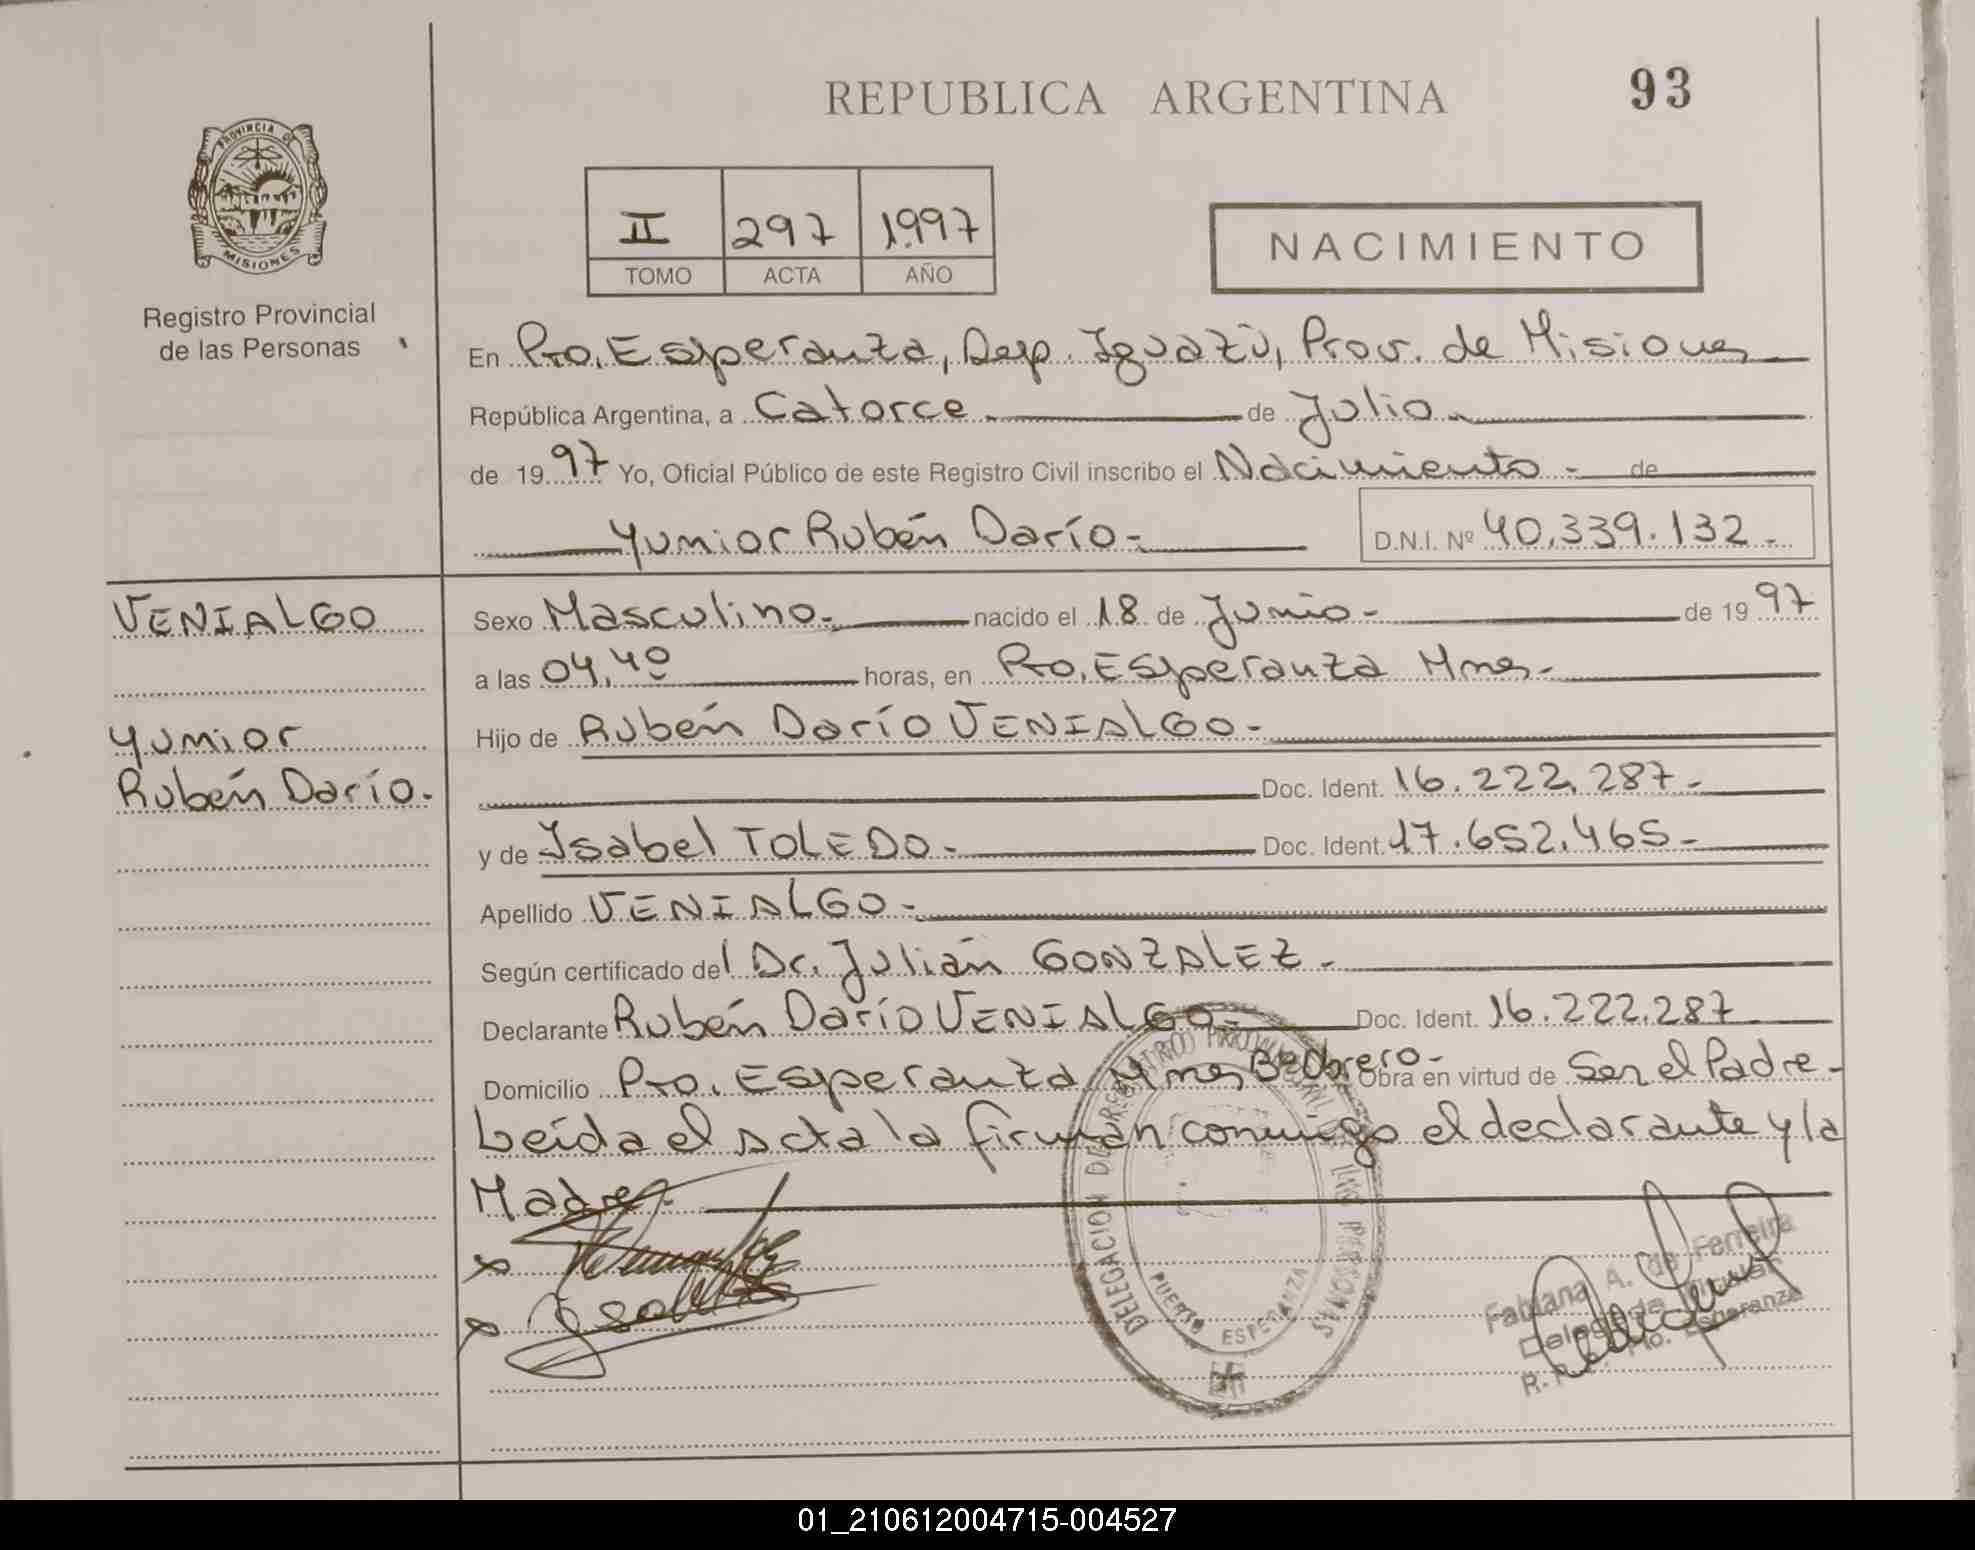 REPUBLICA ARGENTINA
93
PROVINCIA DE
MISIONES
Registro Provincial
de las Personas
II 297 1997
TOMO ACTA AÑO
NACIMIENTO
En Pto. Esperanza, Dep. Iguazú, Prov. de Misiones
República Argentina, a Catorce.- de Julio.-
de 1997 Yo, Oficial Público de este Registro Civil inscribo el Nacimiento.- de
Yunior Rubén Darío.- D.N.I. Nº 40.339.132.-
VENIALGO
Yunior
Rubén Darío.-
Sexo Masculino.- nacido el 18 de Junio.- de 1997
a las 04,40 horas, en Pto. Esperanza Mnes.-
Hijo de Rubén Darío VENIALGO.-
Doc. Ident. 16.222.287.-
y de Isabel TOLEDO.- Doc. Ident. 17.652.465.-
Apellido VENIALGO.-
Según certificado del Dr. Julián GONZALEZ.-
Declarante Rubén Darío VENIALGO.- Doc. Ident. 16.222.287
Domicilio Pto. Esperanza Mnes Obrero.- Obra en virtud de Ser el Padre.-
Leída el acta la firman conmigo el declarante y la
Madre.-
DELEGACION DEL REGISTRO PROVINCIAL DE LAS PERSONAS
PUERTO ESPERANZA
Fabiana A. de Ferreira
Delegada Titular
Pto. Esperanza
01_210612004715-004527